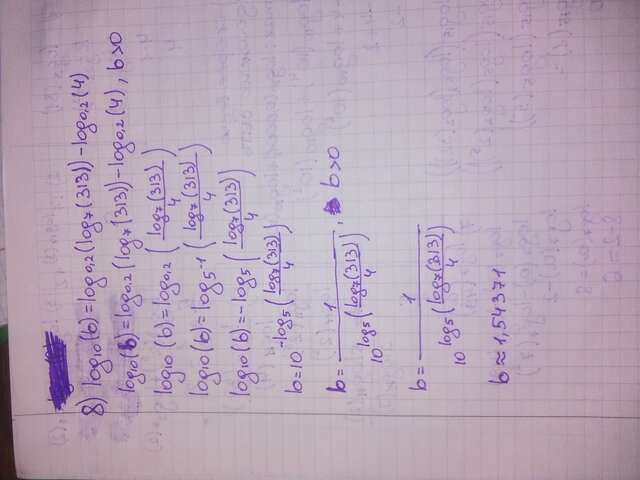 8) log₁₀(b)=log₀,₂(log₇(313))-log₀,₂(4)
log₁₀(b)=log₀,₂(log₇(313))-log₀,₂(4), b>0
log₁₀(b)=log₀,₂(log₇(313)/4)
log₁₀(b)=log₅⁻¹(log₇(313)/4)
log₁₀(b)=-log₅(log₇(313)/4)
b=10^(-log₅(log₇(313)/4))
b=1/10^(log₅(log₇(313)/4)), b>0
b=1/10^(log₅(log₇(313)/4))
b≈1,54371